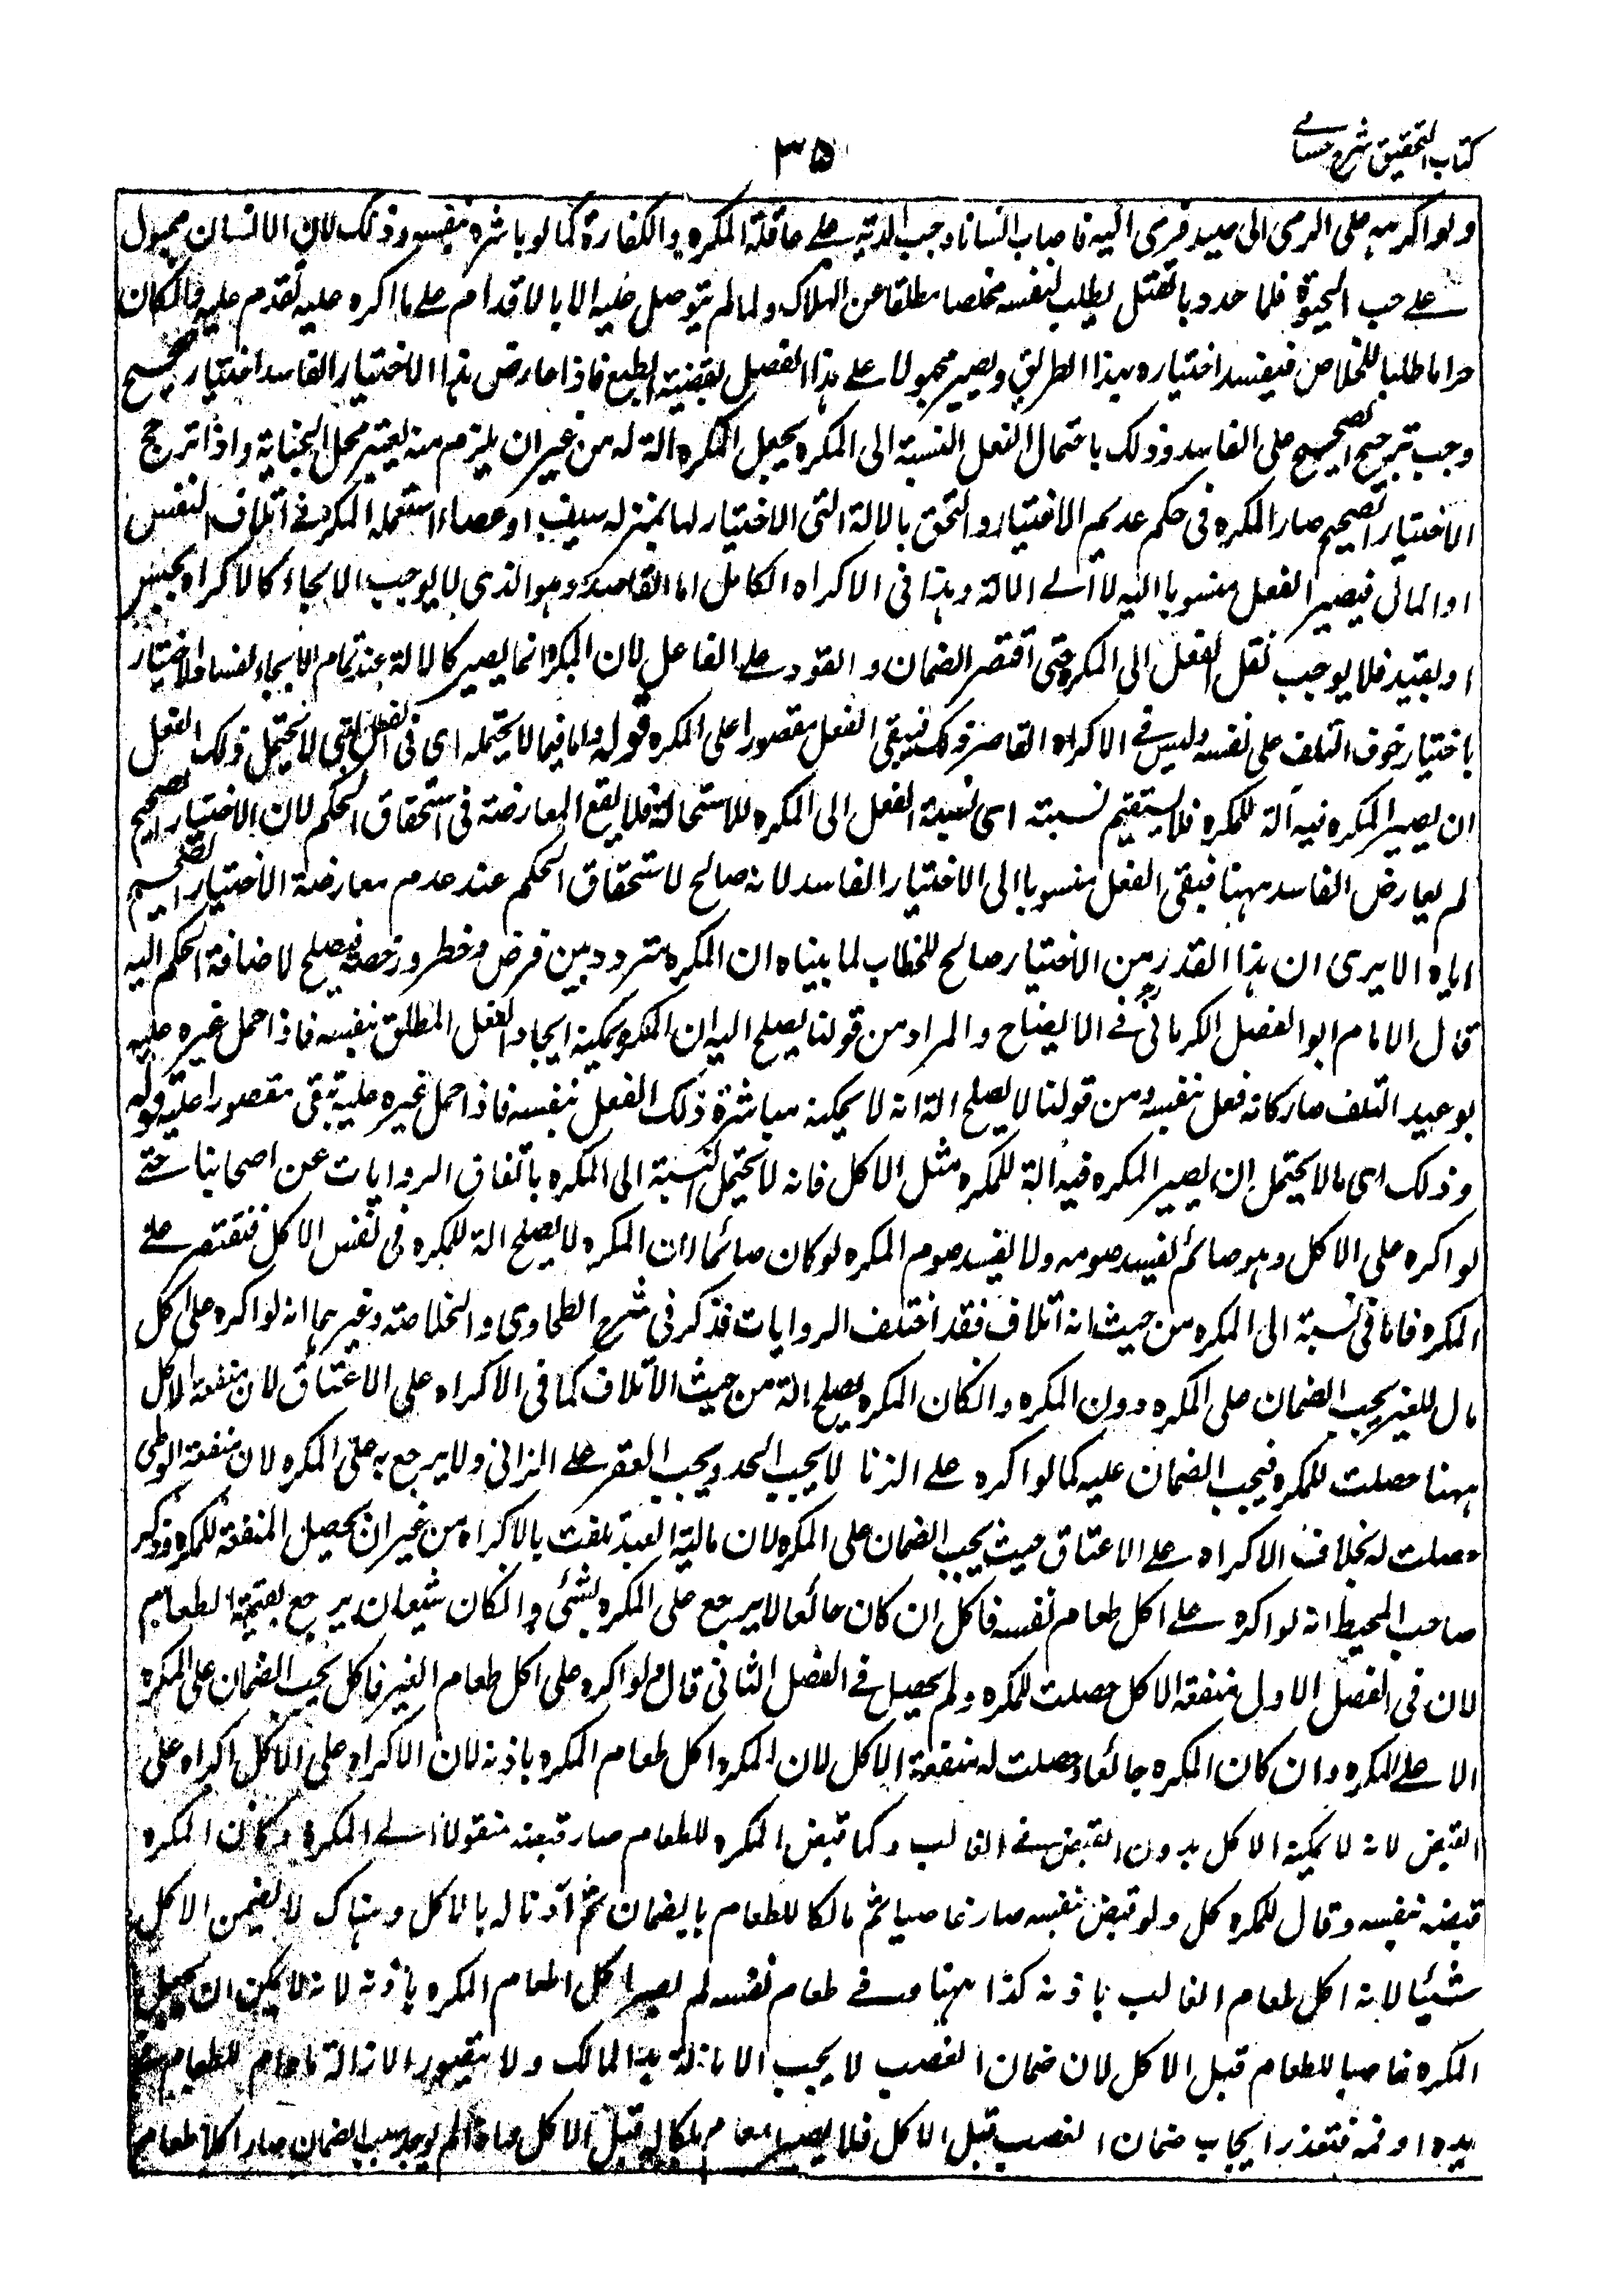 كتاب التحقيق شرح حسامى
٣٥
ولو اكرهه على الرمى الى صيد فرمى اليه فاصاب انسانا وجب الدية على عاقلة المكره والكفارة كما لو باشره بنفسه وذلك لان الانسان مجبول
على حب الحيوة فلما هدد بالقتل يطلب لنفسه مخلصا مطلقا عن الهلاك ولما لم يتوصل اليه الا بالاقدام على ما اكره عليه تقدم عليه وان كان
حراما طلبا للخلاص فيفسد اختياره بهذا الطريق ويصير مجبولا على هذا الفصل بقضية الطبع فاذا عارض هذا الاختيار الفاسد اختيار صحيح
وجب ترجيح الصحيح على الفاسد وذلك باحتمال الفعل النسبة الى المكره بجعل المكره الة له من غير ان يلزم منه تغيير محل الجناية واذا ترجح
الاختيار الصحيح صار المكره فى حكم عديم الاختيار والتحق بالالة التى لا اختيار لها بمنزلة سيف او عصاء استعمله المكره فى اتلاف النفس
او المال فيصير الفعل منسوبا اليه لا الى الالة وهذا فى الاكراه الكامل اما القاصر وهو الذى لا يوجب الالجاء كالاكراه بحبس
او بقيد فلا يوجب نقل الفعل الى المكره حتى اقتصر الضمان والقود على الفاعل لان المكره انما يصير كالالة عند تمام الالجاء لفساد الاختيار
باختيار خوف التلف على نفسه وليس فى الاكراه القاصر ذلك فبقى الفعل مقصورا على المكره قوله واما فيما لا يحتمله اى فى الفعل الذى لا يحتمل ذلك الفعل
ان يصير المكره فيه آلة للمكره فلا يستقيم نسبته اى نسبة الفعل الى المكره للاستحالة فلا يقع المعارضة فى استحقاق الحكم لان الاختيار الصحيح
لم يعارض الفاسد ههنا فبقى الفعل منسوبا الى الاختيار الفاسد لانه صالح لاستحقاق الحكم عند عدم معارضة الاختيار الصحيح
اياه الا يرى ان هذا القدر من الاختيار صالح للخطاب لما بيناه ان المكره متردد بين فرض وخطر ورخصة فيصلح لاضافة الحكم اليه
قال الامام ابو الفضل الكرمانى رح فى الايضاح والمراد من قولنا يصلح اليه ان المكره يمكنه ايجاد الفعل المطلق بنفسه فاذا حمل غيره عليه
بوعيد التلف صار كانه فعل بنفسه ومن قولنا لا يصلح الة انه لا يمكنه مباشرة ذلك الفعل بنفسه فاذا حمل غيره عليه تبقى مقصورا عليه قوله
وذلك اى ما لا يحتمل ان يصير المكره فيه آلة للمكره مثل الاكل فانه لا يحتمل النسبة الى المكره باتفاق الروايات عن اصحابنا حتى
لو اكره على الاكل وهو صائم يفسد صومه ولا يفسد صوم المكره لو كان صائما لان المكره لا يصلح الة للمكره فى نفس الاكل فتقتصر على
المكره فاما فى نسبة الى المكره من حيث انه اتلاف فقد اختلف الروايات فذكر فى شرح الطحاوى والخلاصة وغيرهما انه لو اكره على اكل
مال للغير يجب الضمان على المكره دون المكره وان كان المكره يصلح الة من حيث الاتلاف كما فى الاكراه على الاعتاق لان منفعة الاكل
ههنا حصلت للمكره فيجب الضمان عليه كما لو اكره على الزنا لا يجب الحد ويجب العقر على الزانى ولا يرجع به على المكره لان منفعة الوطى
حصلت له بخلاف الاكراه على الاعتاق حيث يجب الضمان على المكره لان مالية العبد تلفت بالاكراه من غير ان يحصل المنفعة للمكره وذكر
صاحب المحيط انه لو اكره على اكل طعام نفسه فاكل ان كان جائعا لا يرجع على المكره بشئ وان كان شبعان يرجع بقيمة الطعام
لان فى الفصل الاول منفعة الاكل حصلت للمكره ولم يحصل فى الفصل الثانى قال ولو اكره على اكل طعام الغير فاكل يجب الضمان على المكره
لا على المكره وان كان المكره جائعا وحصلت له منفعة الاكل لان المكره اكل طعام المكره باذنه لان الاكراه على الاكل اكراه على
القبض لانه لا يمكنه الاكل بدون القبض فى الغالب وكما قبض المكره للطعام صار قبضه منقولا الى المكره وكان المكره
قبضه بنفسه وقال للمكره كل ولو قبض بنفسه صار غاصبا ثم مالكا للطعام بالضمان ثم آذنا له بالاكل وهناك لا يضمن الاكل
شيئا لانه اكل طعام الغالب باذنه كذا ههنا وفى طعام نفسه لم يصير اكل طعام المكره باذنه لانه لا يمكن ان يجعل
المكره غاصبا للطعام قبل الاكل لان ضمان الغصب لا يجب الا بازالة يد المالك ولا يتصور الازالة مادام الطعام فى
يده او فمه فتعذر ايجاب ضمان الغصب قبل الاكل فلا يصير الطعام ملكا له قبل الاكل فاذا لم يوجد سبب الضمان صار اكلا طعام